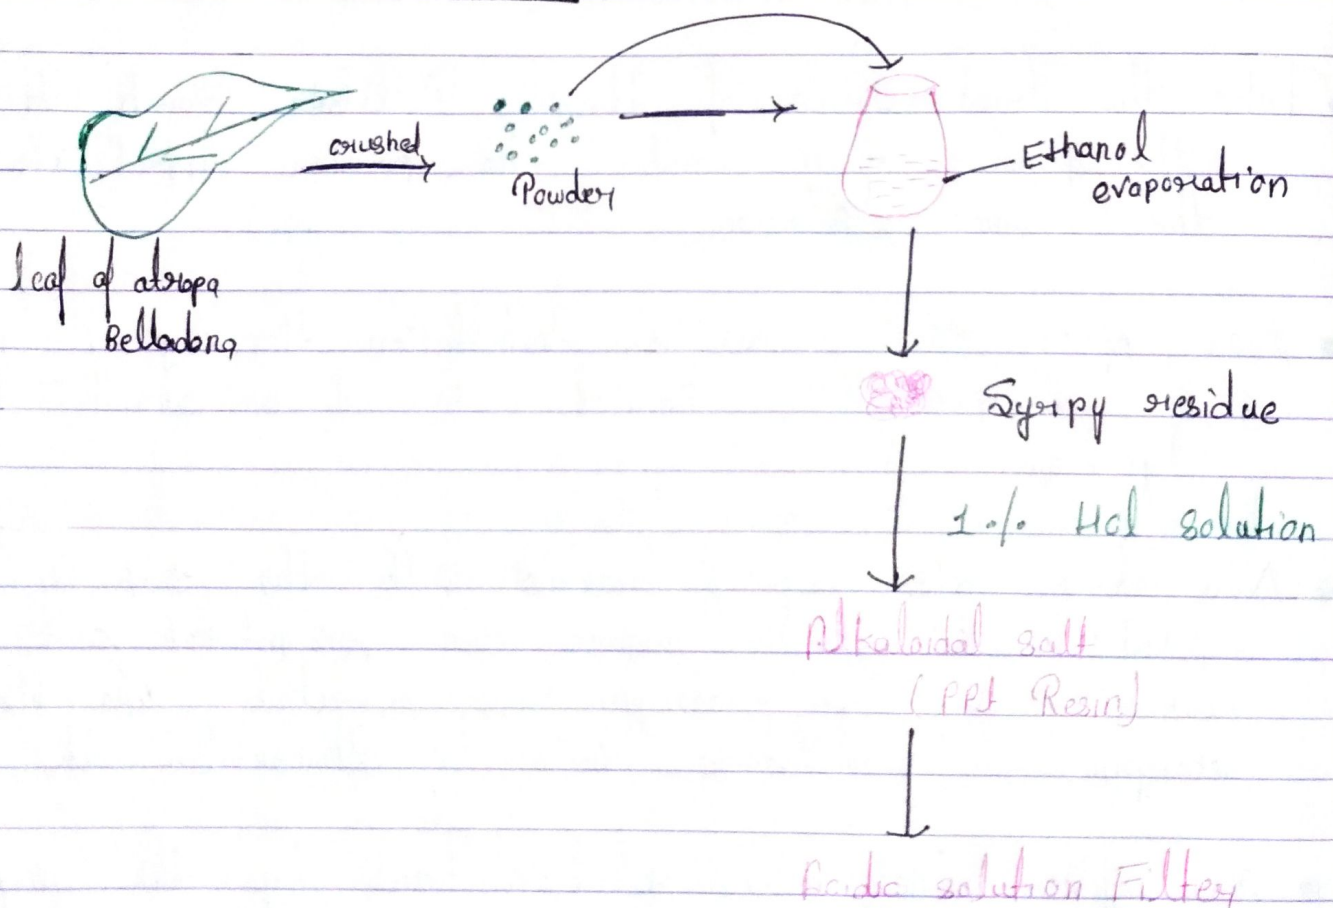 crushed
Powder
Ethanol
evaporation
leaf of atropa
Belladona
Syrpy residue
1 % Hcl solution
Alkaloidal salt
(PPt Resin)
solution Filter